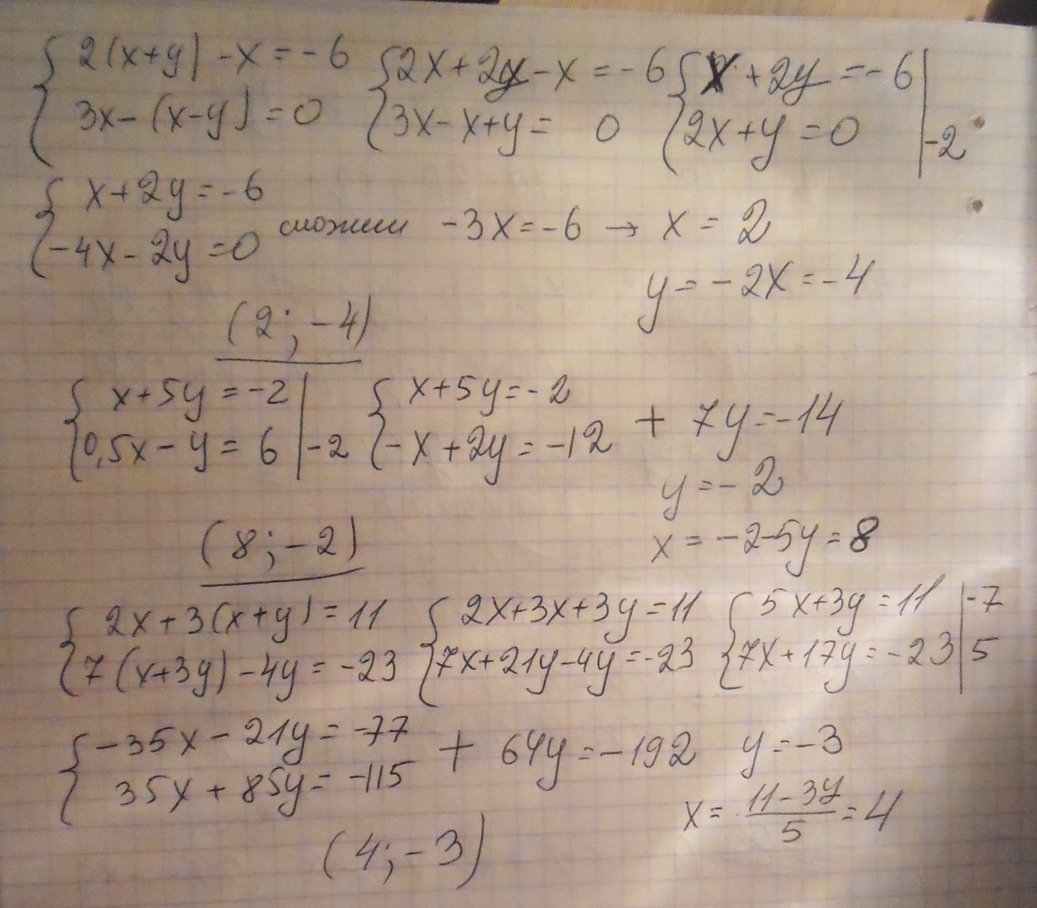 { 2(x+y) - x = -6 { 2x + 2y - x = -6 { x + 2y = -6 |
{ 3x - (x-y) = 0 { 3x - x + y = 0 { 2x + y = 0 | -2
{ x + 2y = -6
{ -4x - 2y = 0 сложим -3x = -6 → x = 2
y = -2x = -4
(2; -4)
{ x + 5y = -2 | { x + 5y = -2
{ 0,5x - y = 6 | -2 { -x + 2y = -12 + 7y = -14
y = -2
x = -2-5y = 8
(8; -2)
{ 2x + 3(x+y) = 11 { 2x+3x+3y = 11 { 5x+3y = 11 | -7
{ 7(x+3y) - 4y = -23 { 7x+21y-4y = -23 { 7x+17y = -23 | 5
{ -35x - 21y = -77
{ 35x + 85y = -115 + 64y = -192 y = -3
x = (11-3y)/5 = 4
(4; -3)